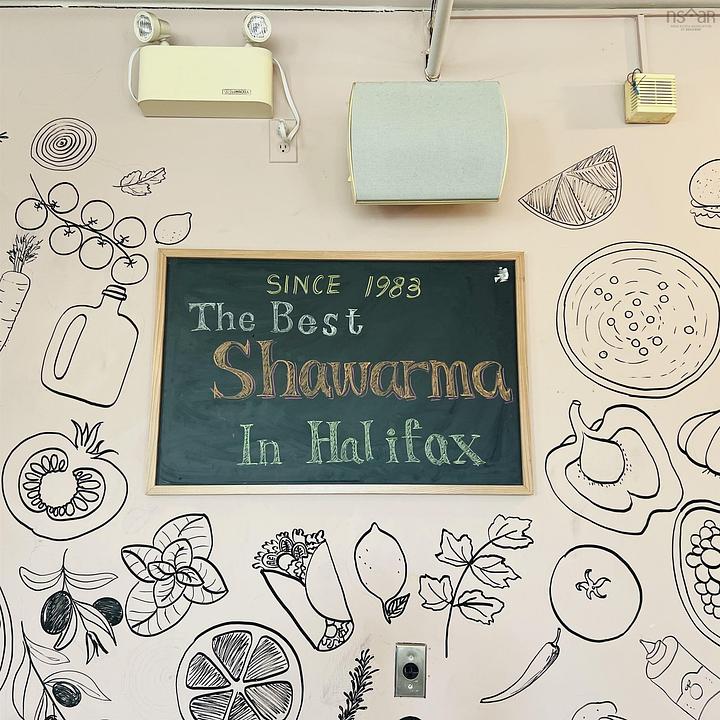 nsar
SINCE 1983
The Best
Shawarma
In Halifax